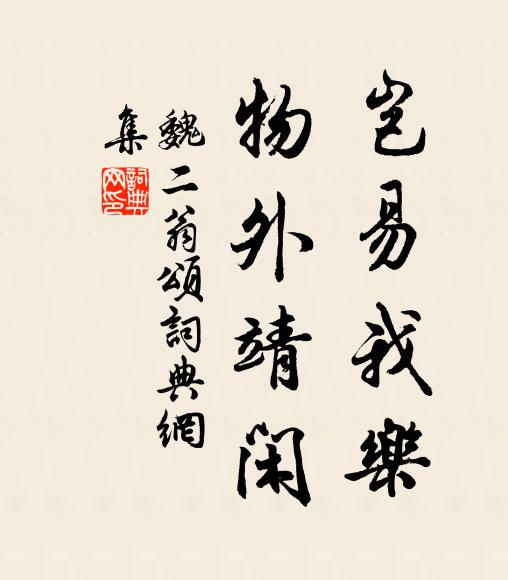 岂易我樂
物外靖闲
魏二翁頌詞典網
集
詞典網印